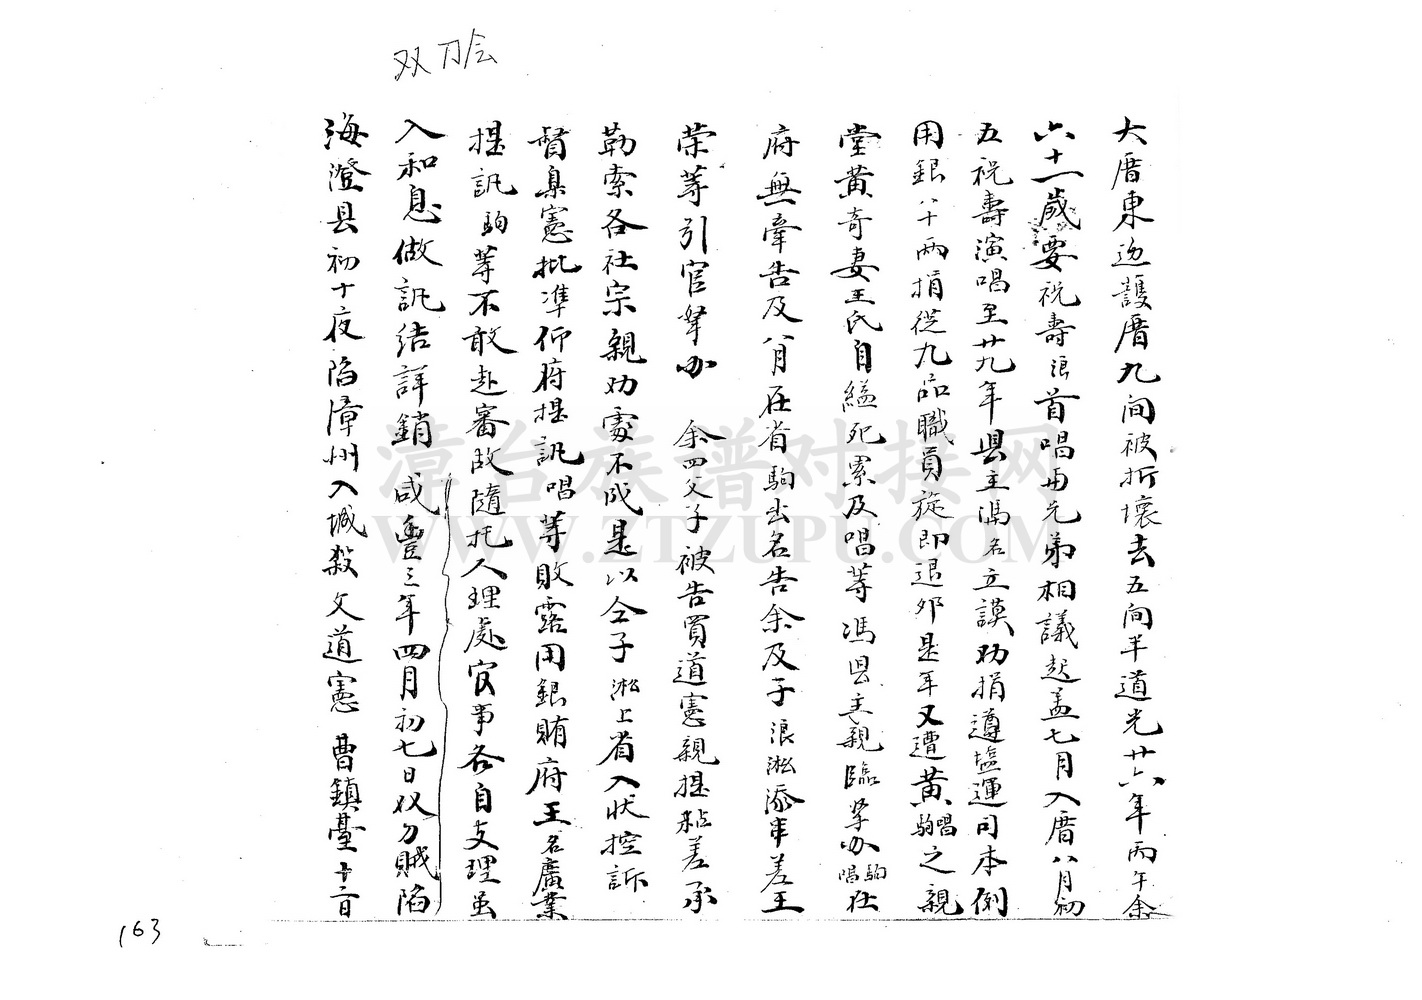 双刀会
大厝東边護厝九间被折壞去五间半道光廿六年丙午余
六十一歲要祝壽浪首唱与兄弟相議起盖七月入厝八月初
五祝壽演唱至廿九年县主馮名立謨劝捐遵塩運司本例
用銀八十兩捐從九品職員旋即退外是年又遭黄駒唱之親
堂黄奇妻王氏自縊死累及唱等馮县主親臨拏办駒唱在
府無牽告及八月在省駒出名告余及子浪淞添串差王
荣等引官拏办 余四父子被告買道憲親提粘差承
勒索各社宗親劝處不成是以仝子淞上省入状控訴
督臬憲批準仰府提訊唱等敗露用銀賄府王名廣業
提訊駒等不敢赴審故隨托人理處官事各自支理虽
入和息做訊结詳銷 咸豐三年四月初七日双刀賊陷
海澄县初十夜陷漳州入城殺文道憲 曹鎮臺十二日
漳台族谱对接网
WWW.ZTZUPU.COM
163